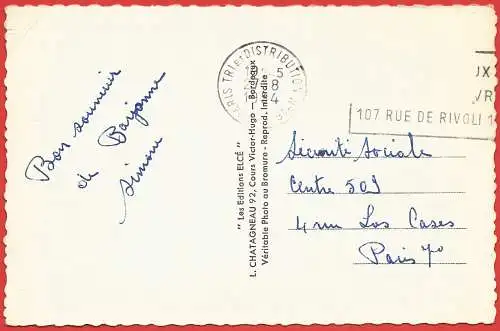 Bon souvenir
de Bayonne
Simone
"Les Editions ELCÉ"
L. CHATAGNEAU 92, Cours Victor-Hugo - Bordeaux
Véritable Photo au Bromure - Reprod. Interdite
PARIS TRI et DISTRIBUTION
5
8
107 RUE DE RIVOLI
Sécurité Sociale
Centre 501
4 rue Las Cases
Paris 7e